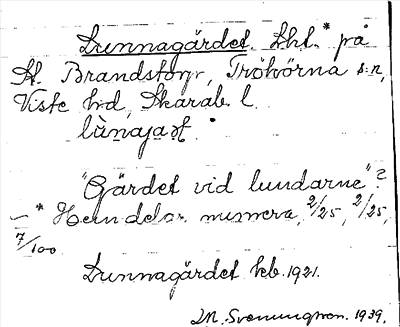 Lunnagärdet. Lht.* på
St. Brandstorp, Tröhörna s:n,
Viste hd, Skarab. l.
lùnajaɽt.
"Gärdet vid lundarne"?
— * Hemdelar. numera, 2/25, 2/25,
7/100
Lunnagärdet heb. 1921.
1939.